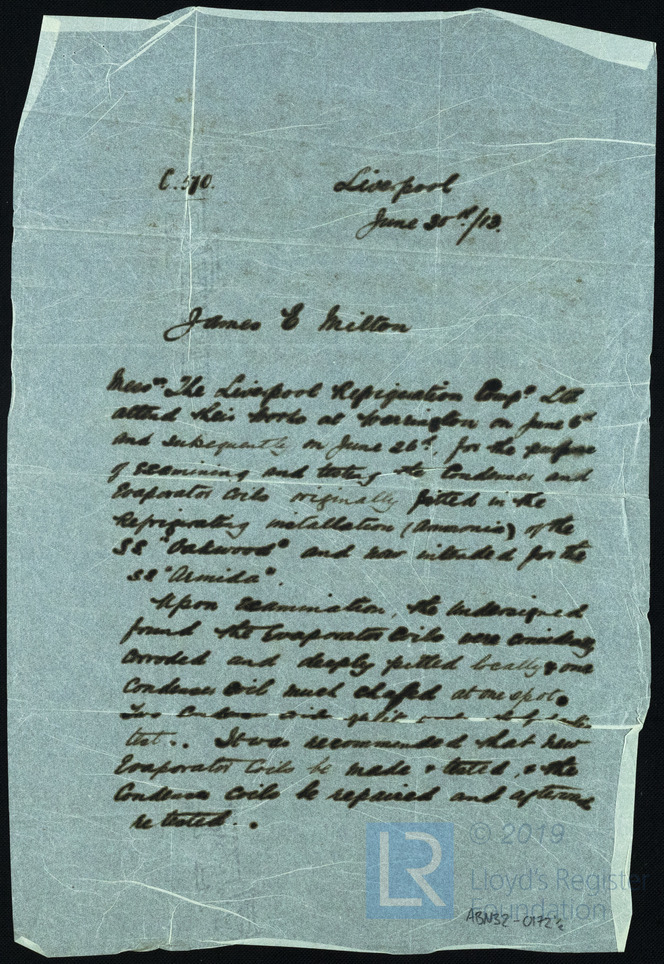 C. 510.
Liverpool
June 30th/13.
James E Milton
Messrs The Liverpool Refrigeration Compy Ltd
attend their works at Warrington on June 6th
and subsequently on June 26th, for the purpose
of examining and testing the Condenser and
Evaporator Coils originally fitted in the
Refrigerating installation (Ammonia) of the
SS "Oakwood" and now intended for the
SS "Armida".
Upon Examination, the Undersigned
found the Evaporator Coils were considerably
corroded and deeply pitted locally & one
Condenser Coil much chafed at one spot.
Two Condenser coils split under the
test.. It was recommended that new
Evaporator Coils be made & tested, & the
Condenser Coils be repaired and afterwards
re tested..
LR
© 2019
Lloyd's Register
Foundation
ABN32-0172